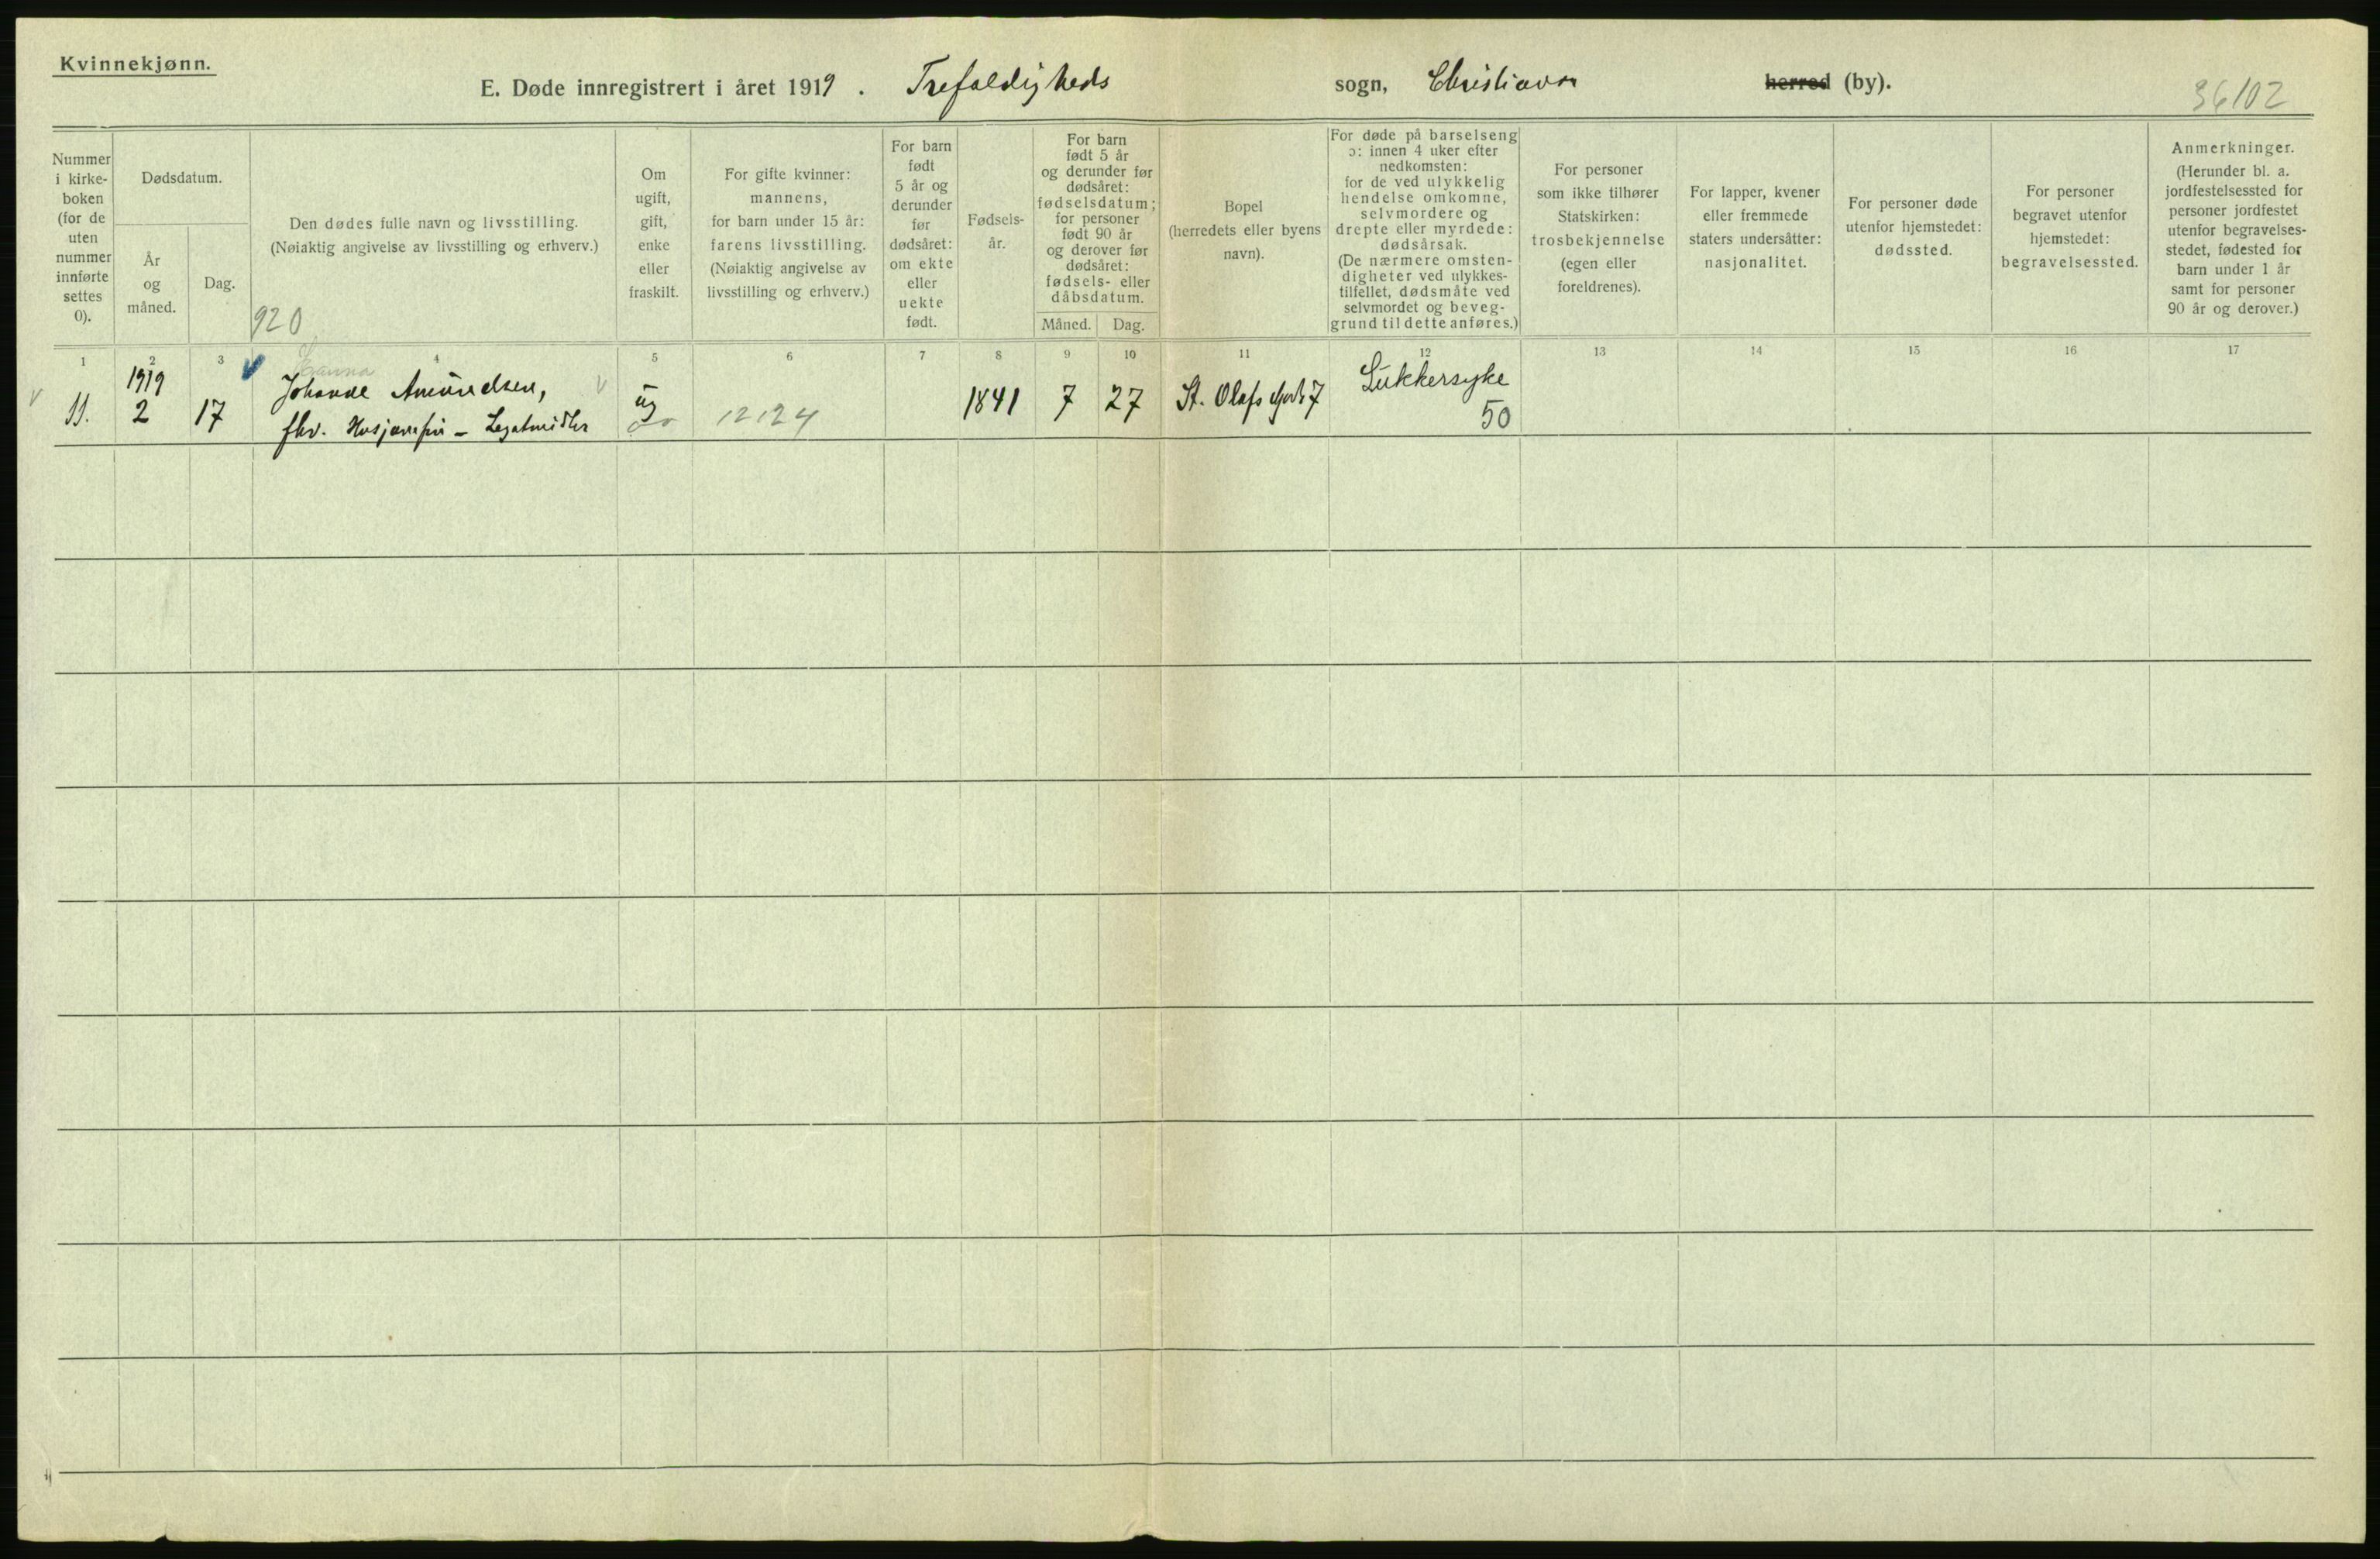 Kvinnekjønn.
E. Døde innregistrert i året 1919 . Trefoldigheds sogn, Christiania herred (by).
36/02
Nummer i kirke-boken (for de uten nummer innførte settes 0).
Dødsdatum.
År og måned.
Dag.
Den dødes fulle navn og livsstilling.
(Nøiaktig angivelse av livsstilling og erhverv.)
920
Om ugift, gift, enke eller fraskilt.
For gifte kvinner: mannens, for barn under 15 år: farens livsstilling. (Nøiaktig angivelse av livsstilling og erhverv.)
For barn født 5 år og derunder før dødsåret: om ekte eller uekte født.
Fødsels-år.
For barn født 5 år og derunder før dødsåret: fødselsdatum; for personer født 90 år og derover før dødsåret: fødsels- eller dåbsdatum.
Måned. Dag.
Bopel (herredets eller byens navn).
For døde på barselseng ɔ: innen 4 uker efter nedkomsten: for de ved ulykkelig hendelse omkomne, selvmordere og drepte eller myrdede: dødsårsak. (De nærmere omsten-digheter ved ulykkes-tilfellet, dødsmåte ved selvmordet og beveg-grund til dette anføres.)
For personer som ikke tilhører Statskirken: trosbekjennelse (egen eller foreldrenes).
For lapper, kvener eller fremmede staters undersåtter: nasjonalitet.
For personer døde utenfor hjemstedet: dødssted.
For personer begravet utenfor hjemstedet: begravelsessted.
Anmerkninger. (Herunder bl. a. jordfestelsessted for personer jordfestet utenfor begravelses-stedet, fødested for barn under 1 år samt for personer 90 år og derover.)
1 2 3 4 5 6 7 8 9 10 11 12 13 14 15 16 17
1919
11. 2 17 Johanne Amundsen, ug 12124 1841 7 27 St. Olafs 7 Sukkersyke
fhv. - Legatmidler 50